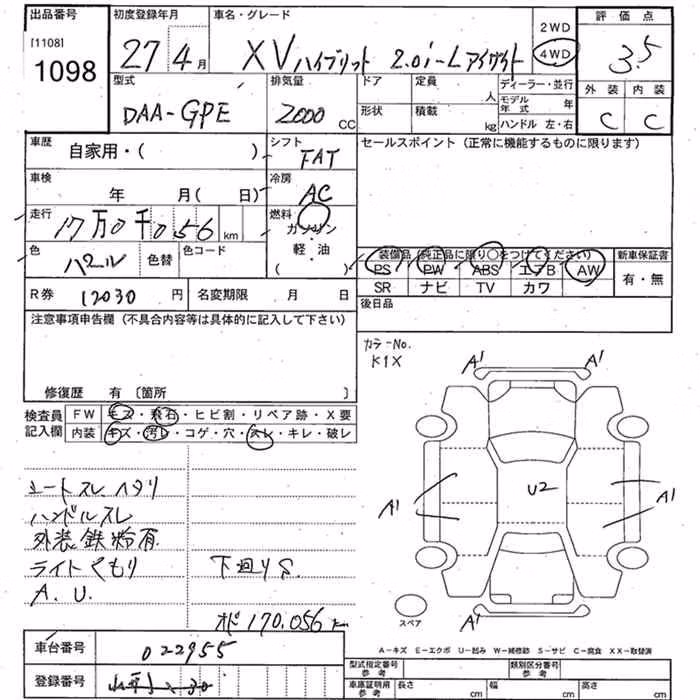 出品番号 初度登録年月 車名・グレード 2WD 評価点
[1108] 1098 27 4月 XV ハイブリット 2.0i-L アイサイト 4WD 3.5
型式 排気量 ドア 定員 人 ディーラー・並行 外装 内装
DAA-GPE 2000 CC 形状 積載 kg モデル年式 年 C C
ハンドル 左・右
車歴 自家用・( ) シフト FAT セールスポイント (正常に機能するものに限ります)
車検 年 月( 日) 冷房 AC
走行 17万0千056 km 燃料 ガソリン・軽・油 ( )
色 パール 色替 色コード
装備品 (純正品に限り○をつけてください) 新車保証書
PS PW ABS エアB AW 有・無
SR ナビ TV カワ
R券 12030 円 名変期限 月 日 後日品
注意事項申告欄 (不具合内容等は具体的に記入して下さい)
カラーNo. K1X
修復歴 有 〔箇所 〕
検査員記入欄 FW キズ・飛石・ヒビ割・リペア跡・X要
内装 キズ・汚レ・コゲ・穴・スレ・キレ・破レ
A1 A1
A1 U2 A1
シートスレ、ヘタリ
ハンドルスレ
外装、鉄粉有
ライトくもり 下回りS
A.U.
オド 170,056 km
A1 A1
スペア
A-キズ E-エクボ U-凹み W-補修跡 S-サビ C-腐食 XX-取替済
車台番号 022955
登録番号
型式指定番号 参考 類別区分番号 参考
車庫証明用 参考 長さ cm 幅 cm 高さ cm